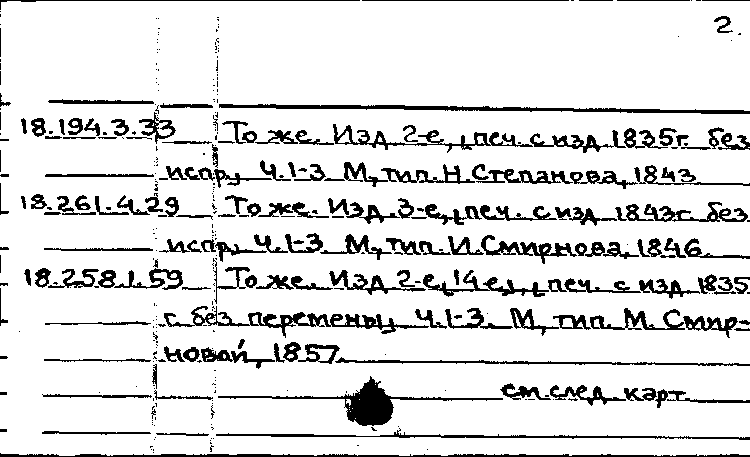 2.
18.194.3.33 То же. Изд. 2-е, [печ. с изд. 1835г. без
испр.] Ч.1-3. М., тип. Н. Степанова, 1843.
18.261.4.29 То же. Изд. 3-е, [печ. с изд. 1843г. без
испр.] Ч.1-3. М., тип. И. Смирнова, 1846.
18.258.1.59 То же. Изд. 2-е, [4 е], [печ. с изд. 1835
г. без перемены] Ч.1-3. М., тип. М. Смир-
новой, 1857.
см. след. карт.